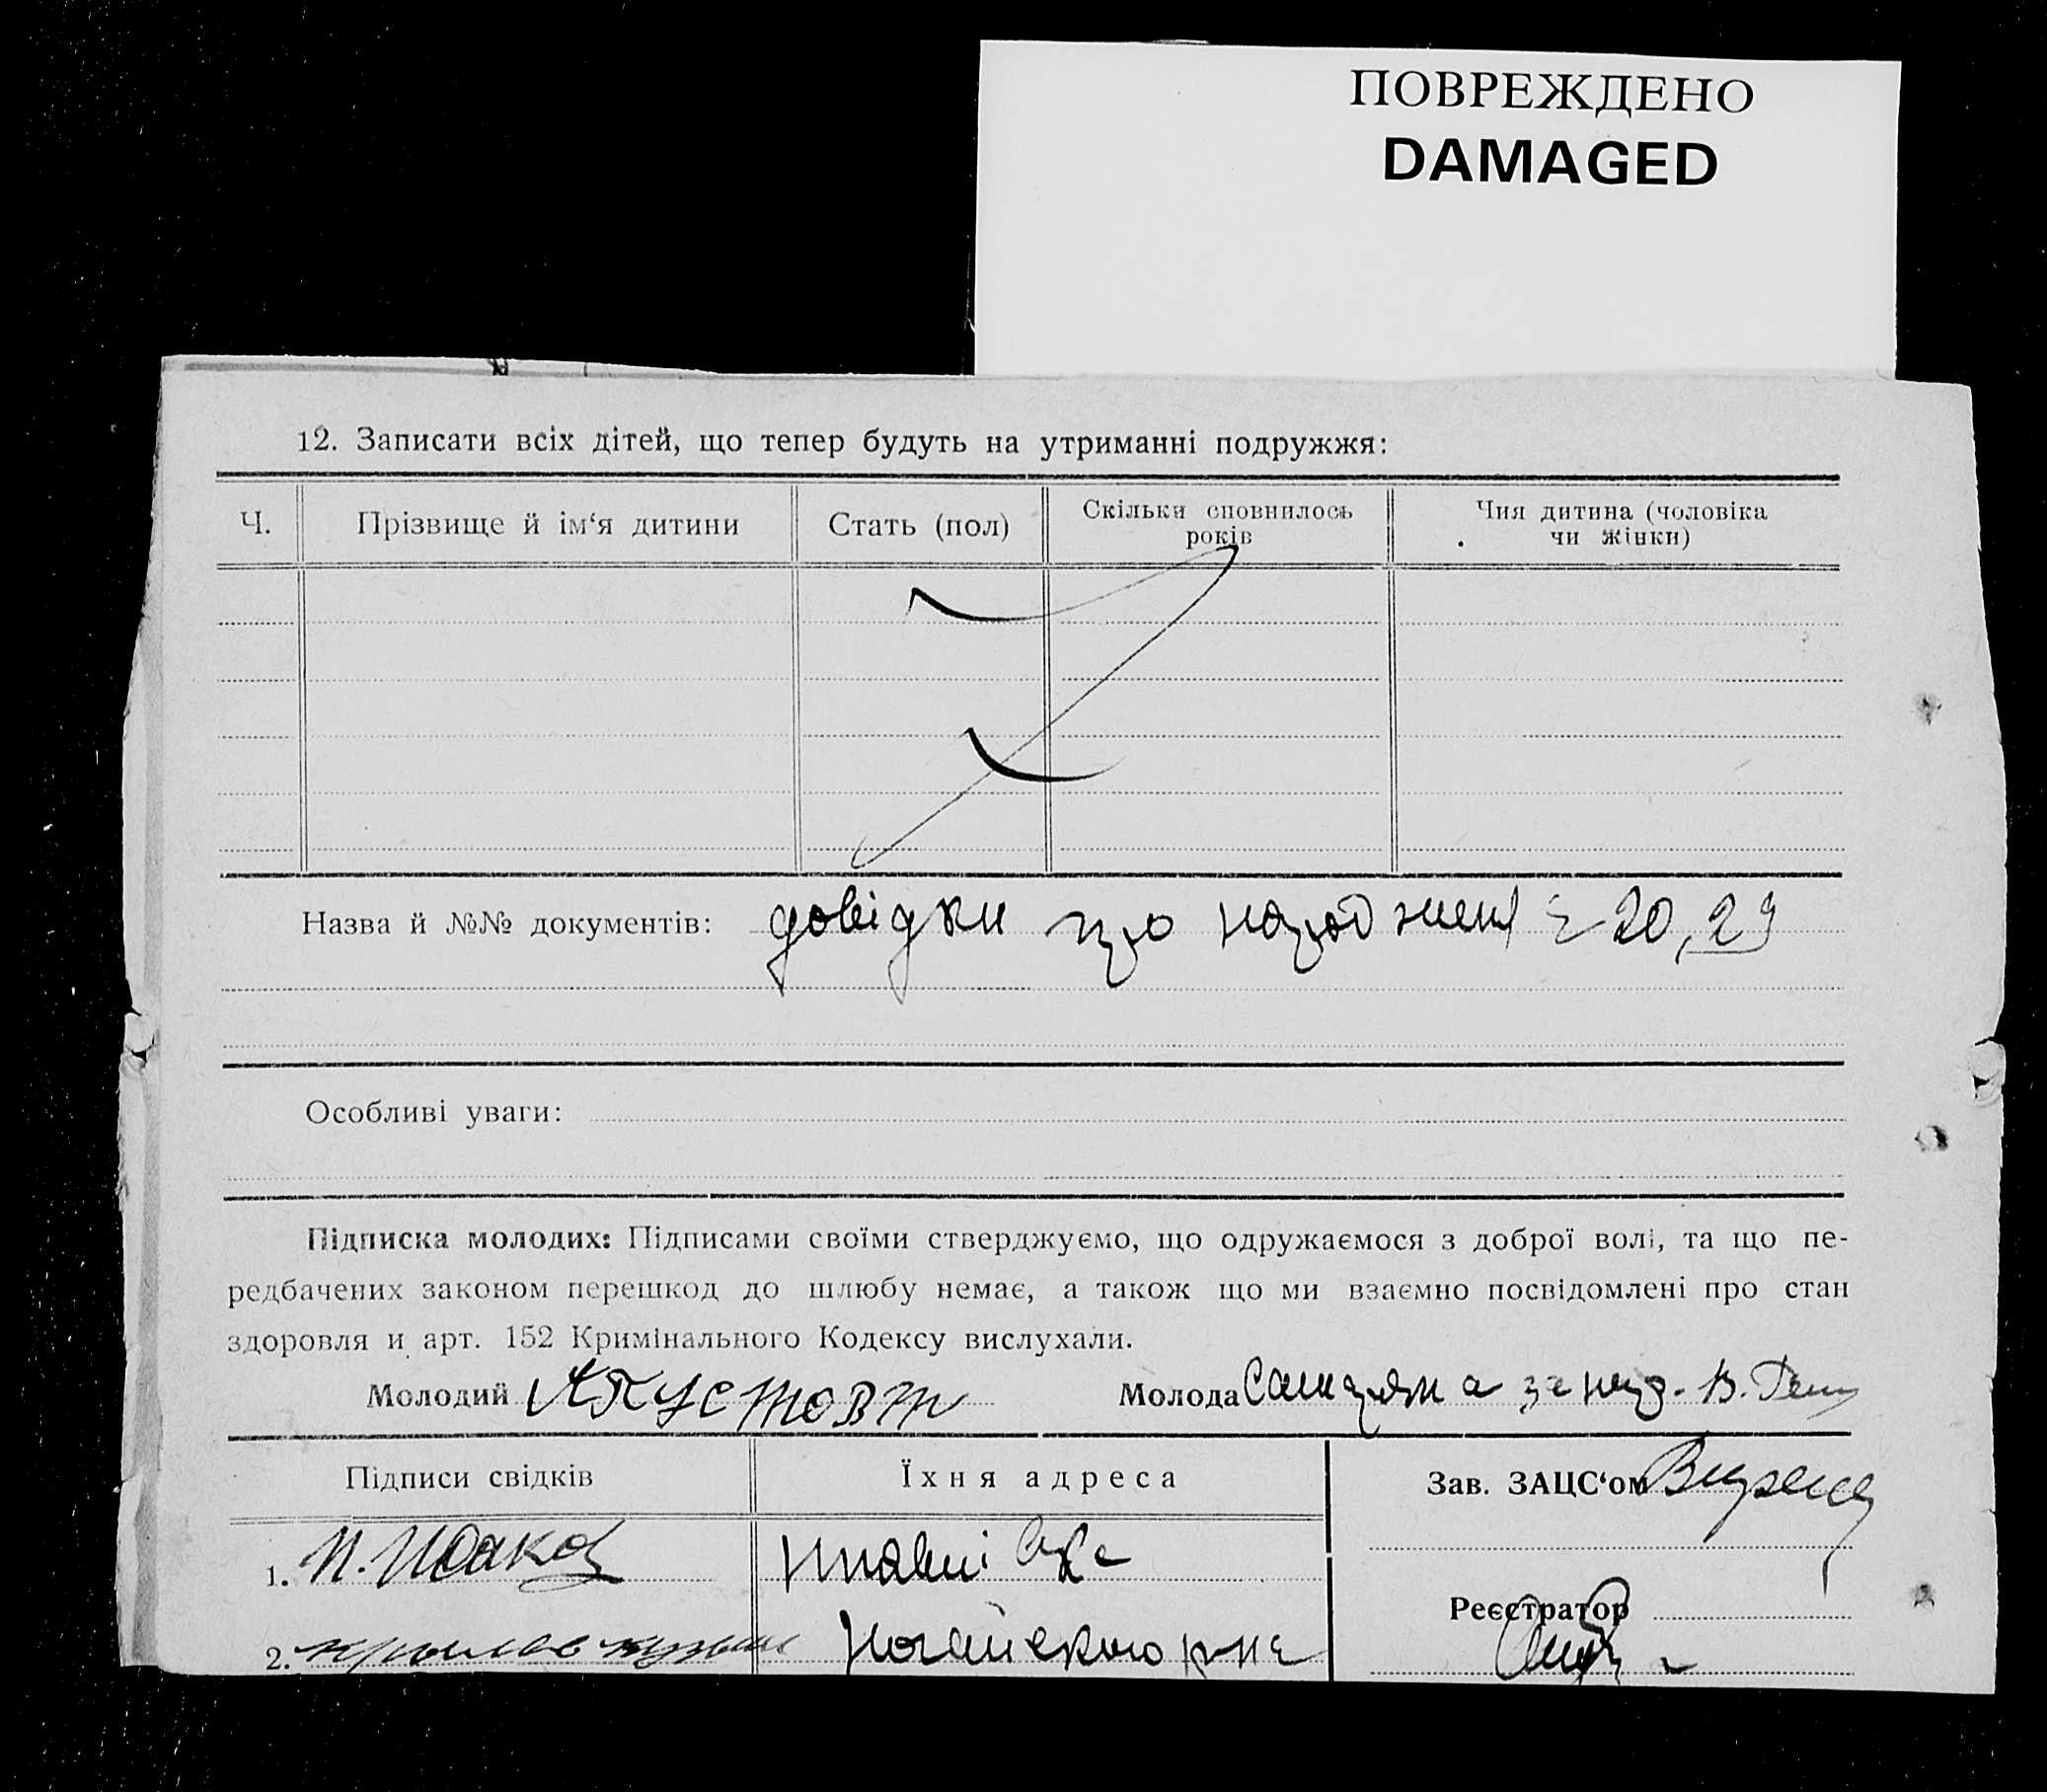 ПОВРЕЖДЕНО
DAMAGED
12. Записати всіх дітей, що тепер будуть на утриманні подружжя:
Ч. Прізвище й ім‘я дитини Стать (пол) Скільки сповнилось років Чия дитина (чоловіка чи жінки)
Назва й №№ документів: довідки про народжен 20, 29
Особливі уваги:
Підписка молодих: Підписами своїми стверджуємо, що одружаємося з доброї волі, та що пе-
редбачених законом перешкод до шлюбу немає, а також що ми взаємно посвідомлені про стан
здоровля и арт. 152 Кримінального Кодексу вислухали.
Молодий Молода
Підписи свідків Їхня адреса Зав. ЗАЦС‘ом
1. И. Исаков
Реєстратор
2. Ногайского р-на